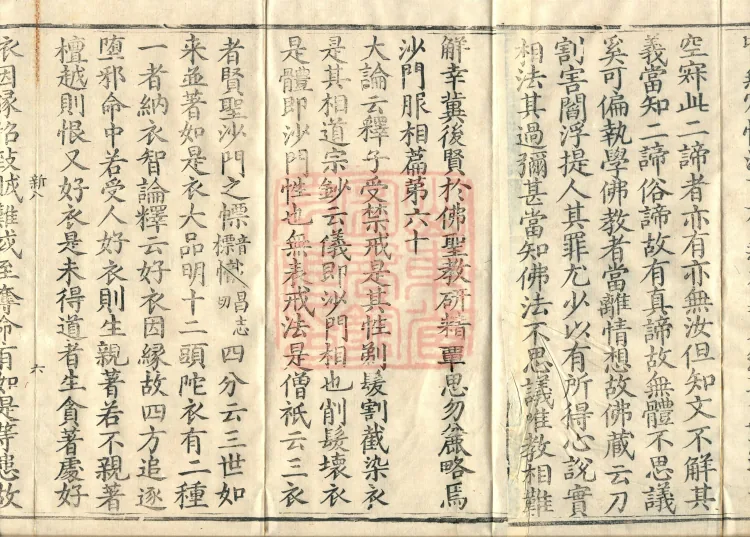 空寐此二諦者亦有亦無汝但知文不解其
義當知二諦俗諦故有真諦故無體不思議
奚可偏執學佛教者當離情想故佛藏云刀
割害閻浮提人其罪尤少以有所得心說實
相法其過彌甚當知佛法不思議惟教相難
解幸冀後賢於佛聖教研精覃思勿麁略焉
沙門服相篇第六十
大論云釋子受禁戒是其性剃髮割截染衣
是其相道宗鈔云儀即沙門相也削髮壞衣
是體即沙門性也無表戒法是僧祇云三衣
者賢聖沙門之幖幟四分云三世如
來並著如是衣大品明十二頭陀衣有二種
一者納衣智論釋云好衣因緣故四方追逐
墮邪命中若受人好衣則生親著若不親著
檀越則恨又好衣是未得道者生貪著處好
衣因緣招致賊難或至奪命有如是等患故